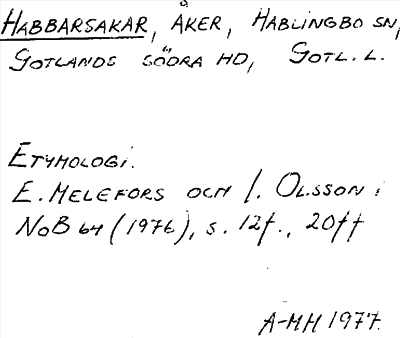 HABBARSAKAR, ÅKER, HABLINGBO SN,
GOTLANDS SÖDRA HD, GOTL. L.
ETYMOLOGI.
E. MELEFORS OCH I. OLSSON i
NoB 64 (1976), s. 12f., 20ff
A-MH 1977.